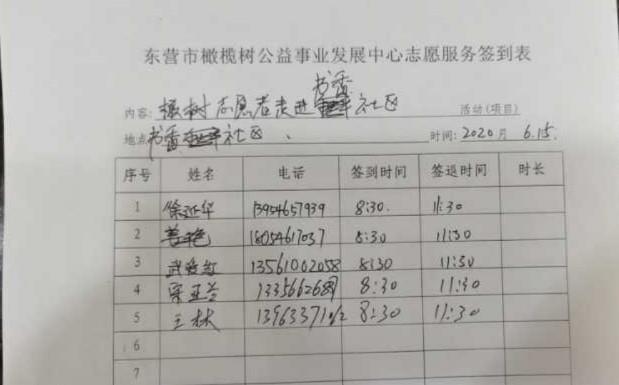 东营市橄榄树公益事业发展中心志愿服务签到表
书香
内容: 橄树志愿者走进 社区 活动(项目)
地点 书香 社区、 时间: 2020月 6.15.
序号 姓名 电话 签到时间 签退时间 时长
1 徐延华 13954657939 8:30. 11:30
2 姜艳 18054617037 8:30 11:30
3 武 红 13561002058 8:30 11:30
4 宋亚兰 8:30 11:30
5 王林 8:30 11:30
6
7